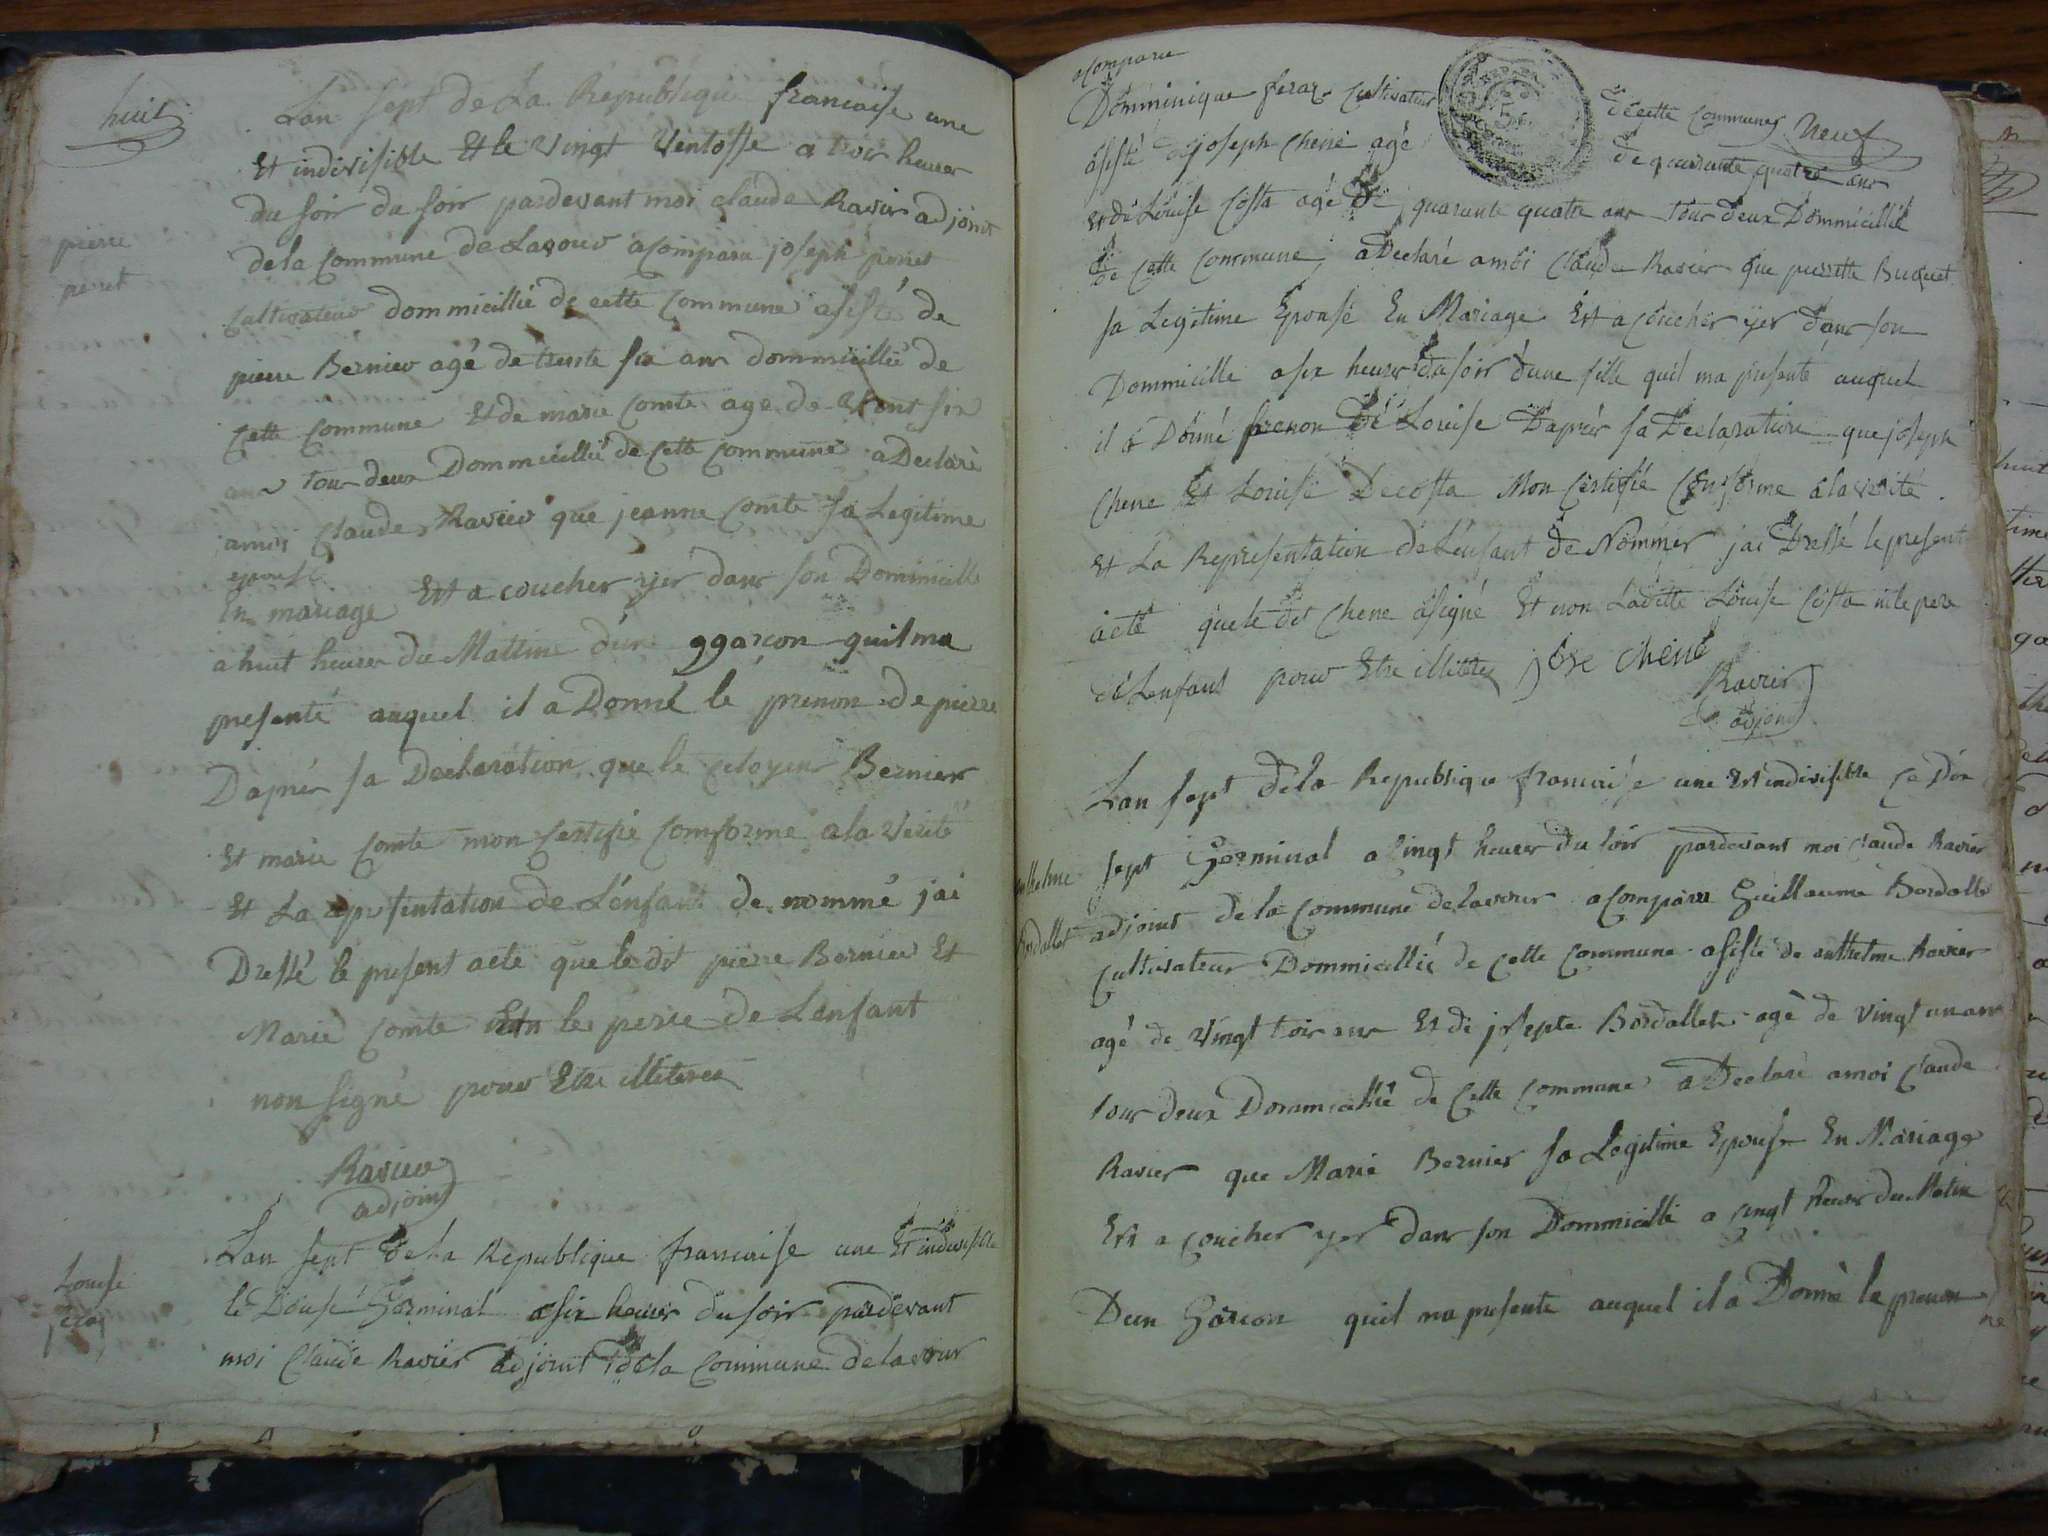 huit
Lan sept de La Republique francaise une
Et indivisible Et le vingt Ventosse a trois heures
du soir du soir pardevant moi claude Ravier adjoint
pierre
peret
de la Commune de Lavour acomparu joseph peret
Cultivateur dommicillié de cette Commune asisté de
pierre Bernier agé de trente six ans dommicillié de
Cette Commune Et de marie Comte age de vent six
ans tous deux Dommicillié de Cette Commune a Declaré
amoi Claude Ravier que jeanne Comte sa Legitime
epousé
En mariage Est a coucher yer dans son Dommicille
a huit heures du Mattine d'un ggarcon quil ma
presenté auquel il a Donné le prenon de pierre
Daprés sa Declaration que le citoyen Bernier
Et marie Comte mon Certifié Comforme a la verité
Et La representation de L'enfant de nommé jai
Dressé le present acte que le dit pierre Bernier Et
Marie Comte le pere de Lenfant
non signé pour Etre illiteres
Ravier
adjoint
Louise
feraz
Lan sept de La Republique francaise une Et indivisible
le Dousé Germinal a six heures du soir pardevant
moi Claude Ravier adjoint de la Commune de lavour
acomparu
Neuf
Dominique feraz Cultivateur de cette Commune
asisté de joseph Chene agé de quarante quatre ans
Et de Louise Costa agé de quarante quatre ans tous deux Dommicillié
de Cette Commune, a Declaré amoi Claude Ravier que pierrette Buquet
sa Legitime Epousé En Mariage Est a Coucher yer dans son
Dommicille a six heures du soir d'une fille quil ma presenté auquel
il a Donné prenon de Louise Daprés sa Declaration que joseph
Chene Et Louise Decosta Mon Certifié Conforme a la verité
Et La Representation de L'enfant de Nommér jai Dressé le present
acte que le dit Chene a signé Et non Ladite Louise Costa ni le pere
de Lenfant pour Etre illiteres chene
Ravier
adjoint
Lan sept de la Republique francaise une Et indivisible ce Dix
sept Germinal a Cinqt heures du soir pardevant moi Claude Ravier
anthelme
Bordallet
adjoint de la Commune de lavour acomparu Guillaume Bordallet
Cultivateur Dommicillié de Cette Commune asisté de anthelme Ravier
agé de vingt trois ans Et de josepte Bordallet agé de vingt un ans
tous deux Dommicillié de Cette Commune a Declaré amoi Claude
Ravier que Marie Bernier sa Legitime Epouse En Mariage
Est a Coucher yer dans son Dommicille a Cinqt heures du Matin
Dun Garcon quil ma presenté auquel il a Donné le prenon